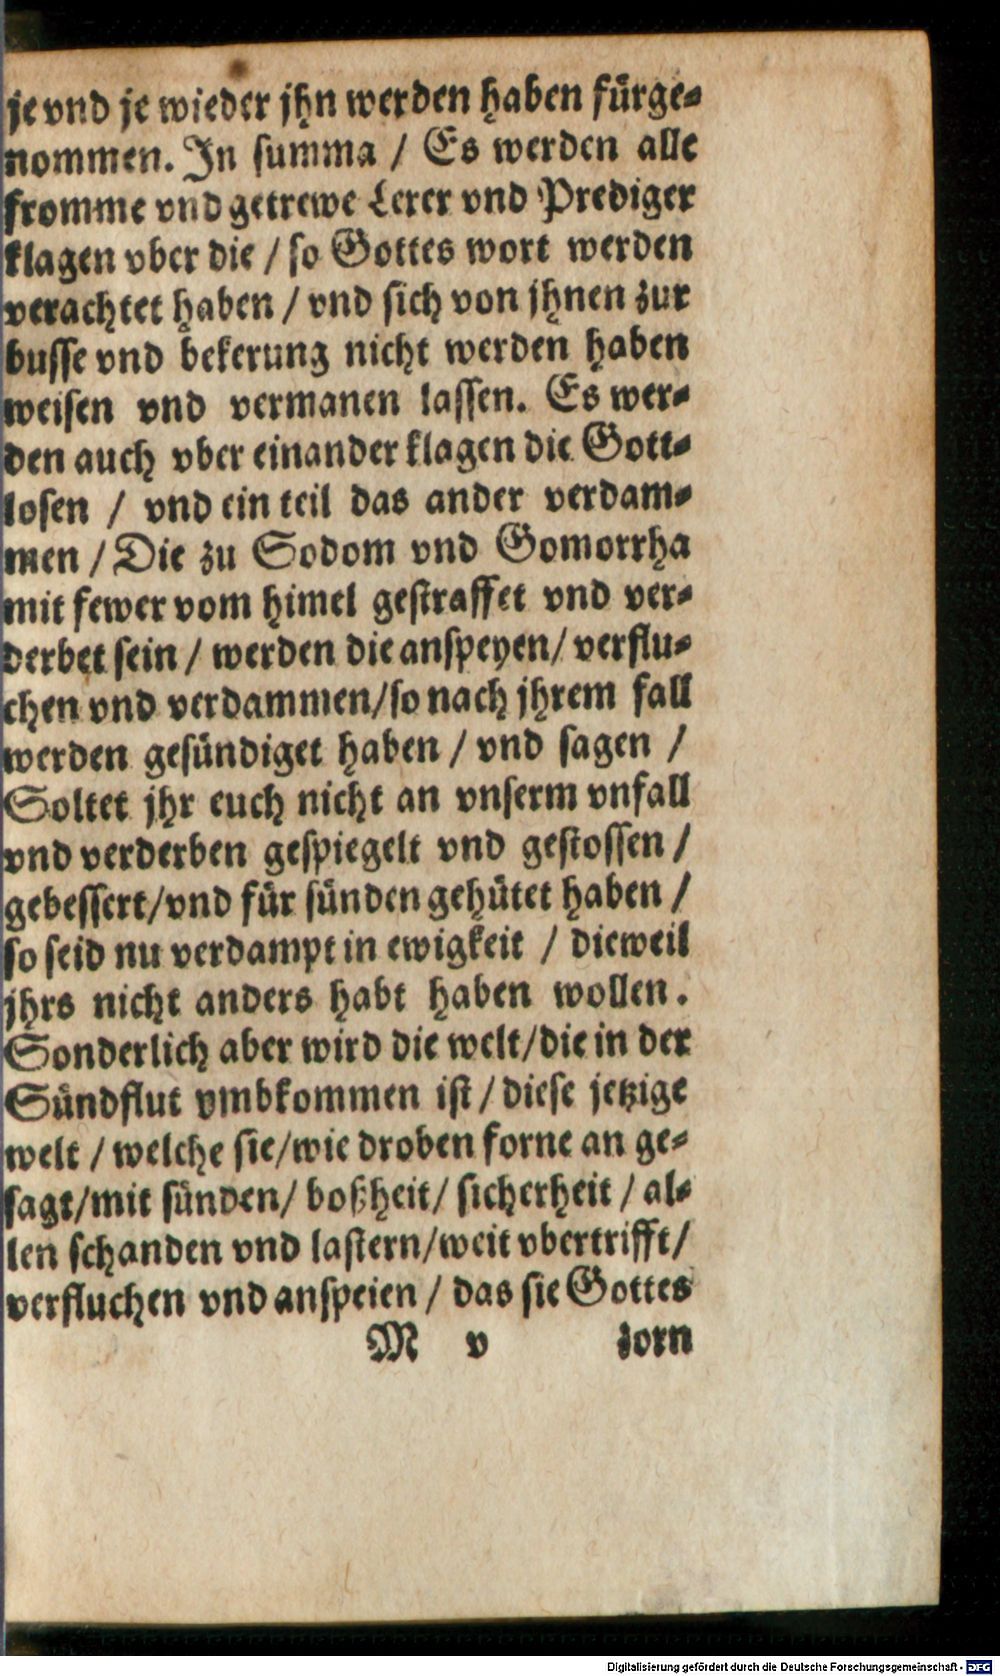 je vnd je wieder jhn werden haben fürge⸗
nommen. In summa / Es werden alle
fromme vnd getrewe Lerer vnd Prediger
klagen vber die / so Gottes wort werden
verachtet haben / vnd sich von jhnen zur
busse vnd bekerung nicht werden haben
weisen vnd vermanen lassen. Es wer⸗
den auch vber einander klagen die Gott⸗
losen / vnd ein teil das ander verdam⸗
men / Die zu Sodom vnd Gomorrha
mit fewer vom himel gestraffet vnd ver⸗
derbet sein / werden die anspeyen/ verflu⸗
chen vnd verdammen/so nach jhrem fall
werden gesündiget haben / vnd sagen /
Soltet jhr euch nicht an vnserm vnfall
vnd verderben gespiegelt vnd gestossen /
gebessert/vnd für sünden gehütet haben /
so seid nu verdampt in ewigkeit / dieweil
jhrs nicht anders habt haben wollen.
Sonderlich aber wird die welt/die in der
Sündflut vmbkommen ist / diese jetzige
welt / welche sie/wie droben forne an ge⸗
sagt/mit sünden/ boßheit/ sicherheit / al⸗
len schanden vnd lastern/weit vbertrifft/
verfluchen vnd anspeien / das sie Gottes
M v zorn
Digitalisierung gefördert durch die Deutsche Forschungsgemeinschaft - DFG